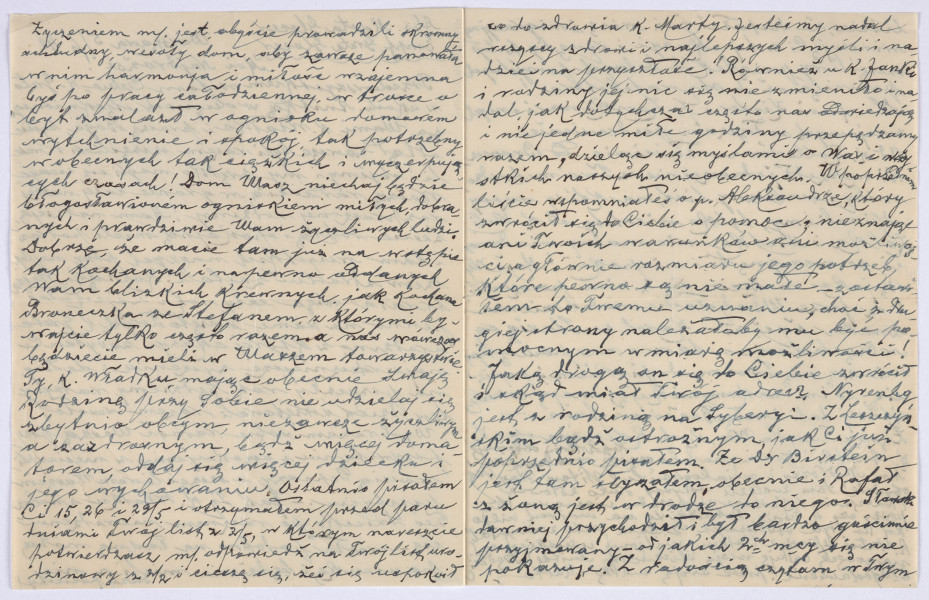 Życzeniem mj. jest abyście prowadzili skromny
schludny, wesoły dom, aby zawsze panowała
w nim harmonja i miłość wzajemna
byś po pracy całodziennej, w trosce o
byt znalazł w ognisku domowem
wytchnienie i spokój, tak potrzebny
w obecnych tak ciężkich i wyczerpują
cych czasach! Dom Wasz niechaj będzie
błogosławionem ogniskiem miłych, dobra
nych i prawdziwie Wam życzliwych ludzi.
Dobrze, że macie tam już na wstępie
tak kochanych i napewno oddanych
Wam blizkich krewnych, jak kochana
Broneczka ze Stefanem, z którymi by-
wajcie tylko często razem, a nas wówczas
będziecie mieli w Waszem towarzystwie.
Ty, k. Władku, mając obecnie Swoją
Rodzinę przy Sobie nie udzielaj się
zbytnio obcym, niezawsze życzliwym
a zazdrosnym, bądź więcej doma-
torem, oddaj się więcej dziecku i
jego wychowaniu. Ostatnio pisałem
Ci 15, 26 i 29/5 i otrzymałem przed paru
dniami Twój list z 2/5, w którym nareszcie
potwierdzasz mj. odpowiedź na Twój list uro-
dzinowy z 2/2, i cieszę się, żeś się uspokoił
co do zdrowia k. Marty. Jesteśmy nadal
rzeźcy zdrowi i najlepszych myśli i na
dziei na przyszłość. Również u k. Janki
i rodziny jej nic się nie zmieniło i na
dal, jak dotychczas często nas odwiedzają
i nie jedne miłe godziny przepędzamy
razem, dzieląc się myślami o Was i wszy
stkich naszych nieobecnych. W poprzednim
liście wspomniałeś o p. Aleksandrze, który
zwrócił się do Ciebie o pomoc, nieznając
ani Twoich warunków ani możliwoś
ci, a głównie rozmiaru jego potrzeb,
które pewno są nie małe - zostawi
łem to Twemu uznaniu, choć z dru
giej strony należałoby mu być po
mocnym w miarę możliwości!
Jaką drogą on się do Ciebie zwrócił
i skąd miał Twój adres, Nyrenberg
jest z rodziną na Syberyi. Z
skim bądź ostrożnym, jak Ci już
poprzednio pisałem. Że Dr Birstein
jest tam słyszałem, obecnie i Rafał
z żoną jest w drodze do niego.
dawniej przychodził i był bardzo gościnnie
przyjmowany - od jakich 2-ch m-cy się nie
pokazuje. Z radością czytam w Twym